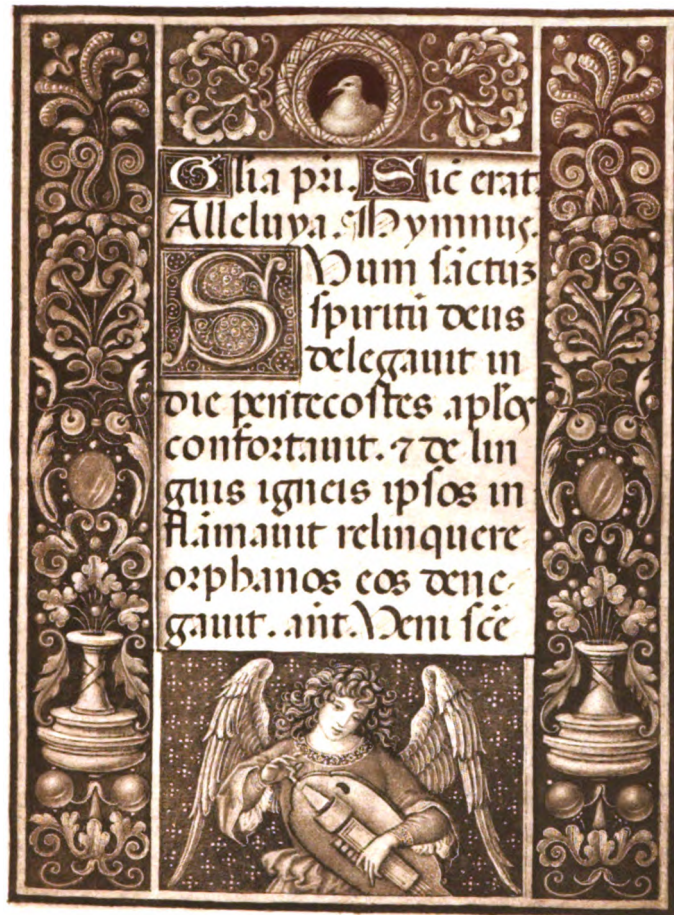 Glia pri. Sic̄ erat.
Alleluya. Hymnus.
Sum sāctuz
spiritū deus
delegauit in
die pentecostes aplōs
confortauit. ⁊ de lin
guis igneis ipsos in
flāmauit relinquere
orphanos eos dene-
gauit. añt. Veni scē